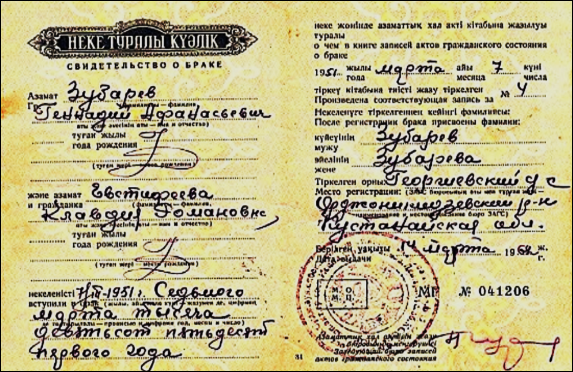 НЕКЕ ТУРАЛЫ КУӘЛІК
СВИДЕТЕЛЬСТВО О БРАКЕ
Азамат Зубарев
Гр
Геннадий Афанасьевич
туған жылы
года рождения
(туған жері – место рождения)
және азамат Евстифеева
и гражданка (фамилиясы – фамилия)
Клавдия Романовн
туған жылы
года рождения
(туған жері – место рождения)
некеленісті 7/III-1951г. Седьмого
вступили в
марта тысяча
девятьсот пятьдесят
первого года
неке жөнінде азаматтық хал акті кітабына жазылуы
туралы
о чем в книге записей актов гражданского состояния
о браке
1951 жылы марта айы 7 күні
года месяца числа
тіркеу кітабына тиісті жазу тіркелген № 4
Произведена соответствующая запись за
Некеленуге тіркелгеннен кейінгі фамилиясы:
После регистрации брака присвоены фамилии:
күйеуінің Зубарев
мужу
әйелінің Зубарева
жене
Тіркелген орны Георгиевский с
Место регистрации:
Орджоникидзевский р-н
Кустанайская обл.
Берілген уақыты 14 марта ж.
Дата выдачи
№ 041206
Заведующий бюро записей
актов гражданского состояния